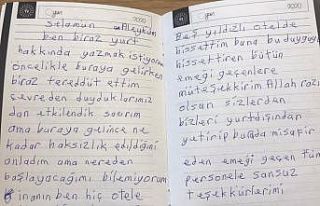 gün
9000
Selamün Aleyküm
ben biraz yurt
hakkında yazmak istiyorum
öncelikle buraya gelirken
biraz tereddüt ettim
çevreden duyduklarımız
dan etkilendik sanırım
ama buraya gelince ne
kadar haksızlık edildğini
anladım ama nereden
başlayacağımı bilemiyorum
inanın ben hiç otele
gün
9000
Beş yıldızlı otelde
hissettim bana bu duyguyu
hissettiren bütün
emeği geçenlere
müteşekkirim Allah razı
olsun sizlerden
bizleri yurtdışından
getirip burada misafir
eden emeği geçen tüm
personele sonsuz
teşekkürlerimi